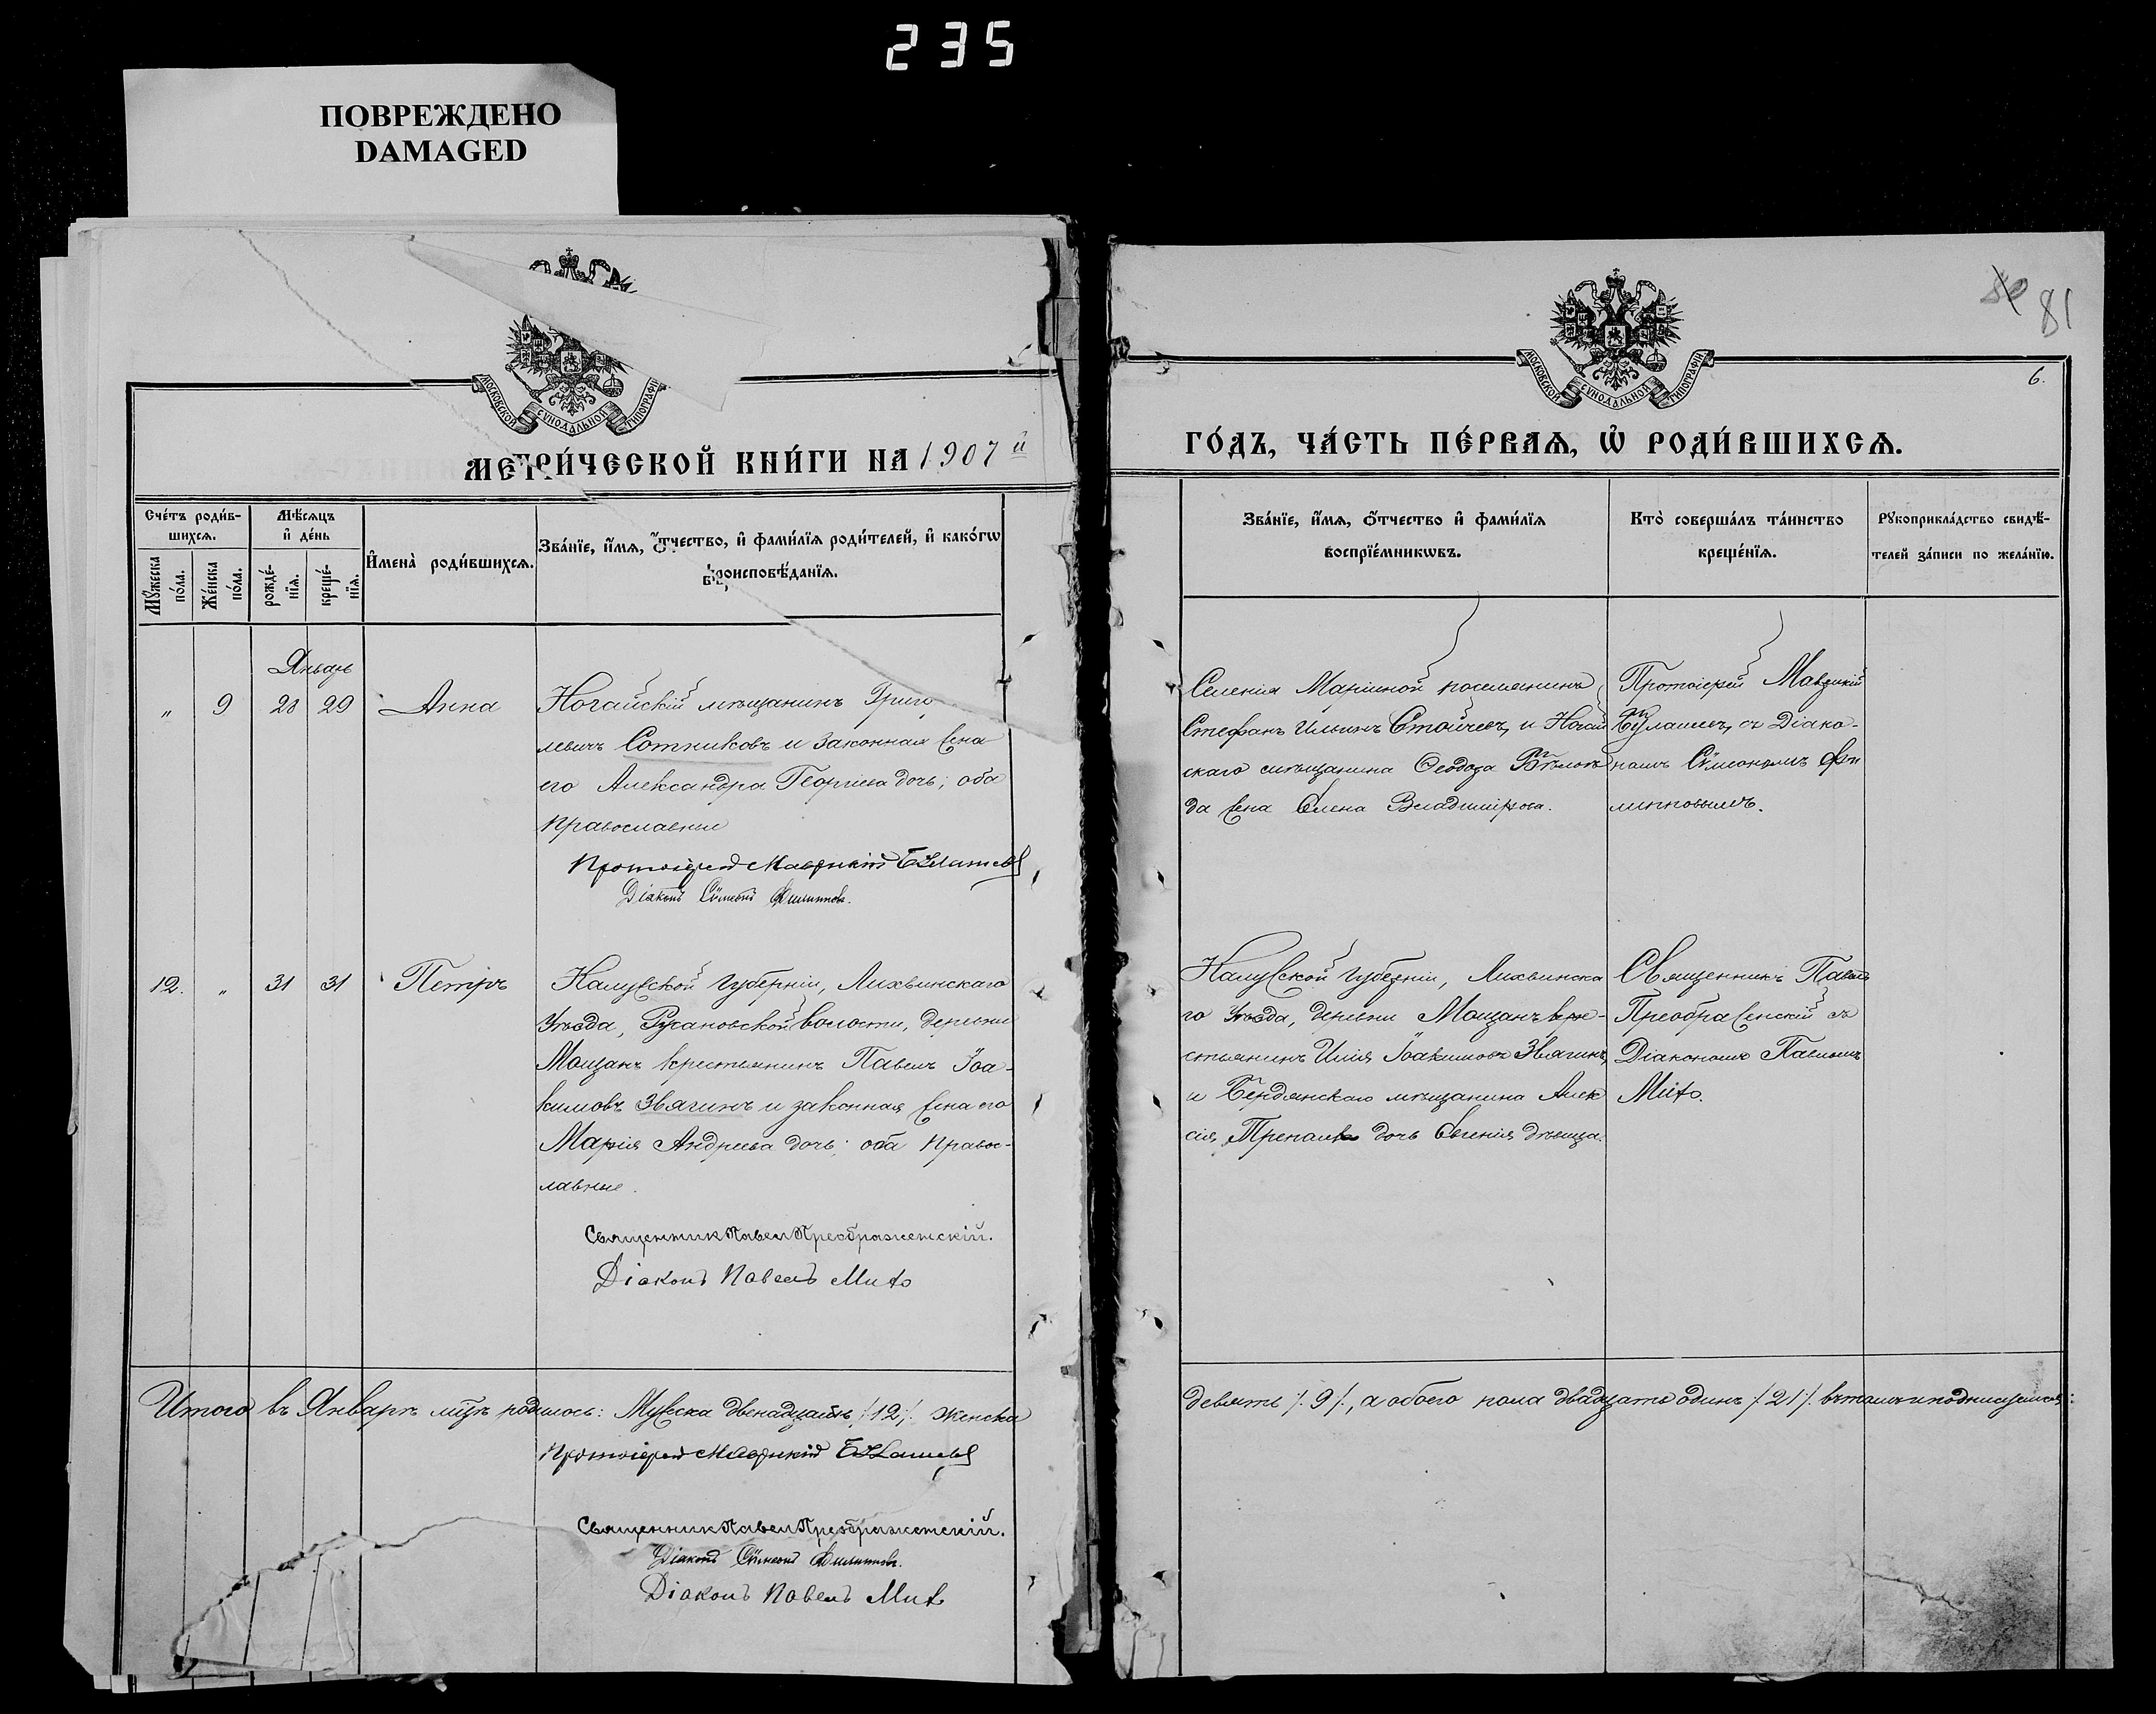 235
ПОВРЕЖДЕНО
DAMAGED
80 81
6.
МОСКОВСКОЙ СѴНОДАЛЬНОЙ ТИПОГРАФІИ
МОСКОВСКОЙ СѴНОДАЛЬНОЙ ТИПОГРАФІИ
МЕТРИ́ЧЕСКОЙ КНИ́ГИ НА 1907 й
ГО́ДЪ, ЧА́СТЬ ПЕ́РВАѦ, Ѡ҆ РОДИ́ВШИХСѦ.
Сче́тъ роди́в-
шихсѧ.
Мꙋ́жеска по́ла.
Же́нска по́ла.
Мѣ́сѧцъ
и҆ де́нь
рожде́-
нїѧ.
креще́-
нїѧ.
И҆мена̀ роди́вшихсѧ.
Зва́нїе, и҆́мѧ, ѻ҆́тчество, и҆ фами́лїѧ роди́телей, и҆ како́гѡ
вѣроисповѣ́данїѧ.
Зва́нїе, и҆́мѧ, ѻ҆́тчество и҆ фами́лїѧ
воспрїе́мникѡвъ.
Кто̀ соверша́лъ та́инство
креще́нїѧ.
Рꙋкоприкла́дство свидѣ́-
телей за́писи по жела́нїю.
Январь
" 9 28 29 Анна
Ногайскій мѣщанинъ Григо
левичъ Сотниковъ и законная жена
его Александра Георгіева дочь; оба
православные
Протоіерей Маврикій Булашевъ
Діаконъ Сѵмеонъ Филипповъ.
Селенія Маріиной поселянинъ
Стефанъ Ильинъ Стойчевъ, и Ногай
скаго мѣщанина Ѳеодора
да жена Елена Владимірова.
Протоіерей Маврикій
Булашевъ, съ Діако-
номъ Сѵмеономъ Фи
липповымъ.
12. " 31 31 Петръ
Калужской губерніи, Лихвинскаго
уѣзда, Русановской волости, деревни
Мощанъ крестьянинъ Павелъ Іоа-
кимовъ Звягинъ и законная жена его
Марія Андреева дочь; оба правос-
лавные.
Священник Павел Преображенскій.
Діаконъ Павелъ Мито
Калужской губерніи, Лихвинска
го уѣзда, деревни Мощанъ кре-
стьянинъ Илія Іоакимовъ Звягинъ,
и Бердянскаго мѣщанина Алек
сія дочь Евгенія дѣвица.
Священникъ Павелъ
Преображенскій съ
Діакономъ Павломъ
Мито.
Итого въ Январѣ м̃цѣ родилось: Мужска двенадцать /12/. женска
девять /. 9 /., а обоего пола двадцать одинъ /. 21 /. въ томъ и подписуемся:
Протоіерей Маврикій Булашевъ
Священник Павел Преображенскій.
Діаконъ Сѵмеонъ Филипповъ.
Діаконъ Павелъ Мито